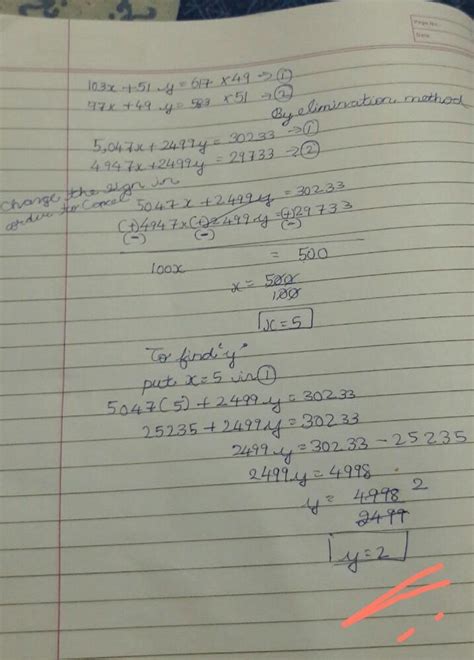 Page No.
Date
103x + 51 y = 617 × 49 → ①
97x + 49 y = 583 × 51 → ②
By elimination method
5,047x + 2499y = 30233 → ①
4947x + 2499y = 29733 → ②
Change the sign in
order to Cancel
5047x + 2499y = 30233
(+)4947x (+)2499y = (+)29733
(-) (-) (-)
100x = 500
x = 500
100
x = 5
To find "y"
put x = 5 in ①
5047(5) + 2499y = 30233
25235 + 2499y = 30233
2499y = 30233 - 25235
2499y = 4998
y = 4998 2
2499
y = 2